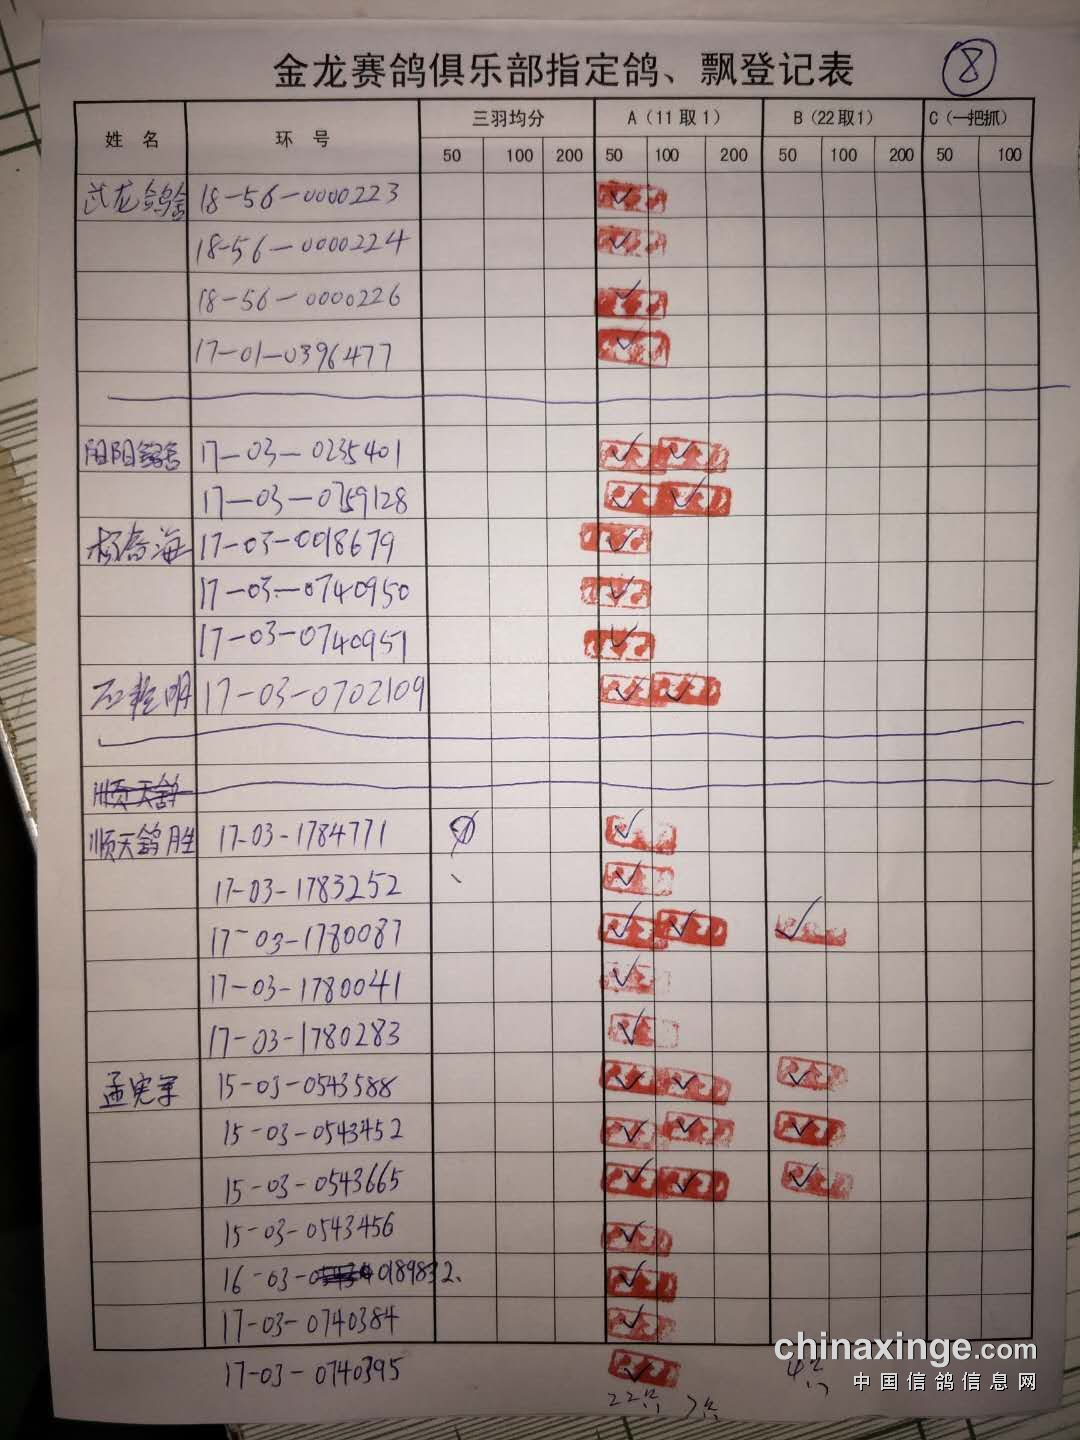 金龙赛鸽俱乐部指定鸽、飘登记表 8
姓 名 环 号 三羽均分 A（11取1） B（22取1） C（一把抓）
50 100 200 50 100 200 50 100 200 50 100
武龙鸽舍 18-56-0000223 ✓
18-56-0000224 ✓
18-56-0000226 ✓
17-01-0396477 ✓
阳阳鸽舍 17-03-0235401 ✓ ✓
17-03-0759128 ✓ ✓
杨 海 17-03-0018679 ✓
17-03-0740950 ✓
17-03-0740951 ✓
明 17-03-0702109 ✓ ✓
顺天鸽
顺天鸽胜 17-03-1784771 ✓
17-03-1783252 ✓
17-03-1780087 ✓ ✓ ✓
17-03-1780041 ✓
17-03-1780283 ✓
孟宪军 15-03-0543588 ✓ ✓ ✓
15-03-0543452 ✓ ✓ ✓
15-03-0543665 ✓ ✓ ✓
15-03-0543456 ✓
16-03-0189832 ✓
17-03-0740384 ✓
17-03-0740395 ✓
22 7 4
chinaxinge.com
中国信鸽信息网